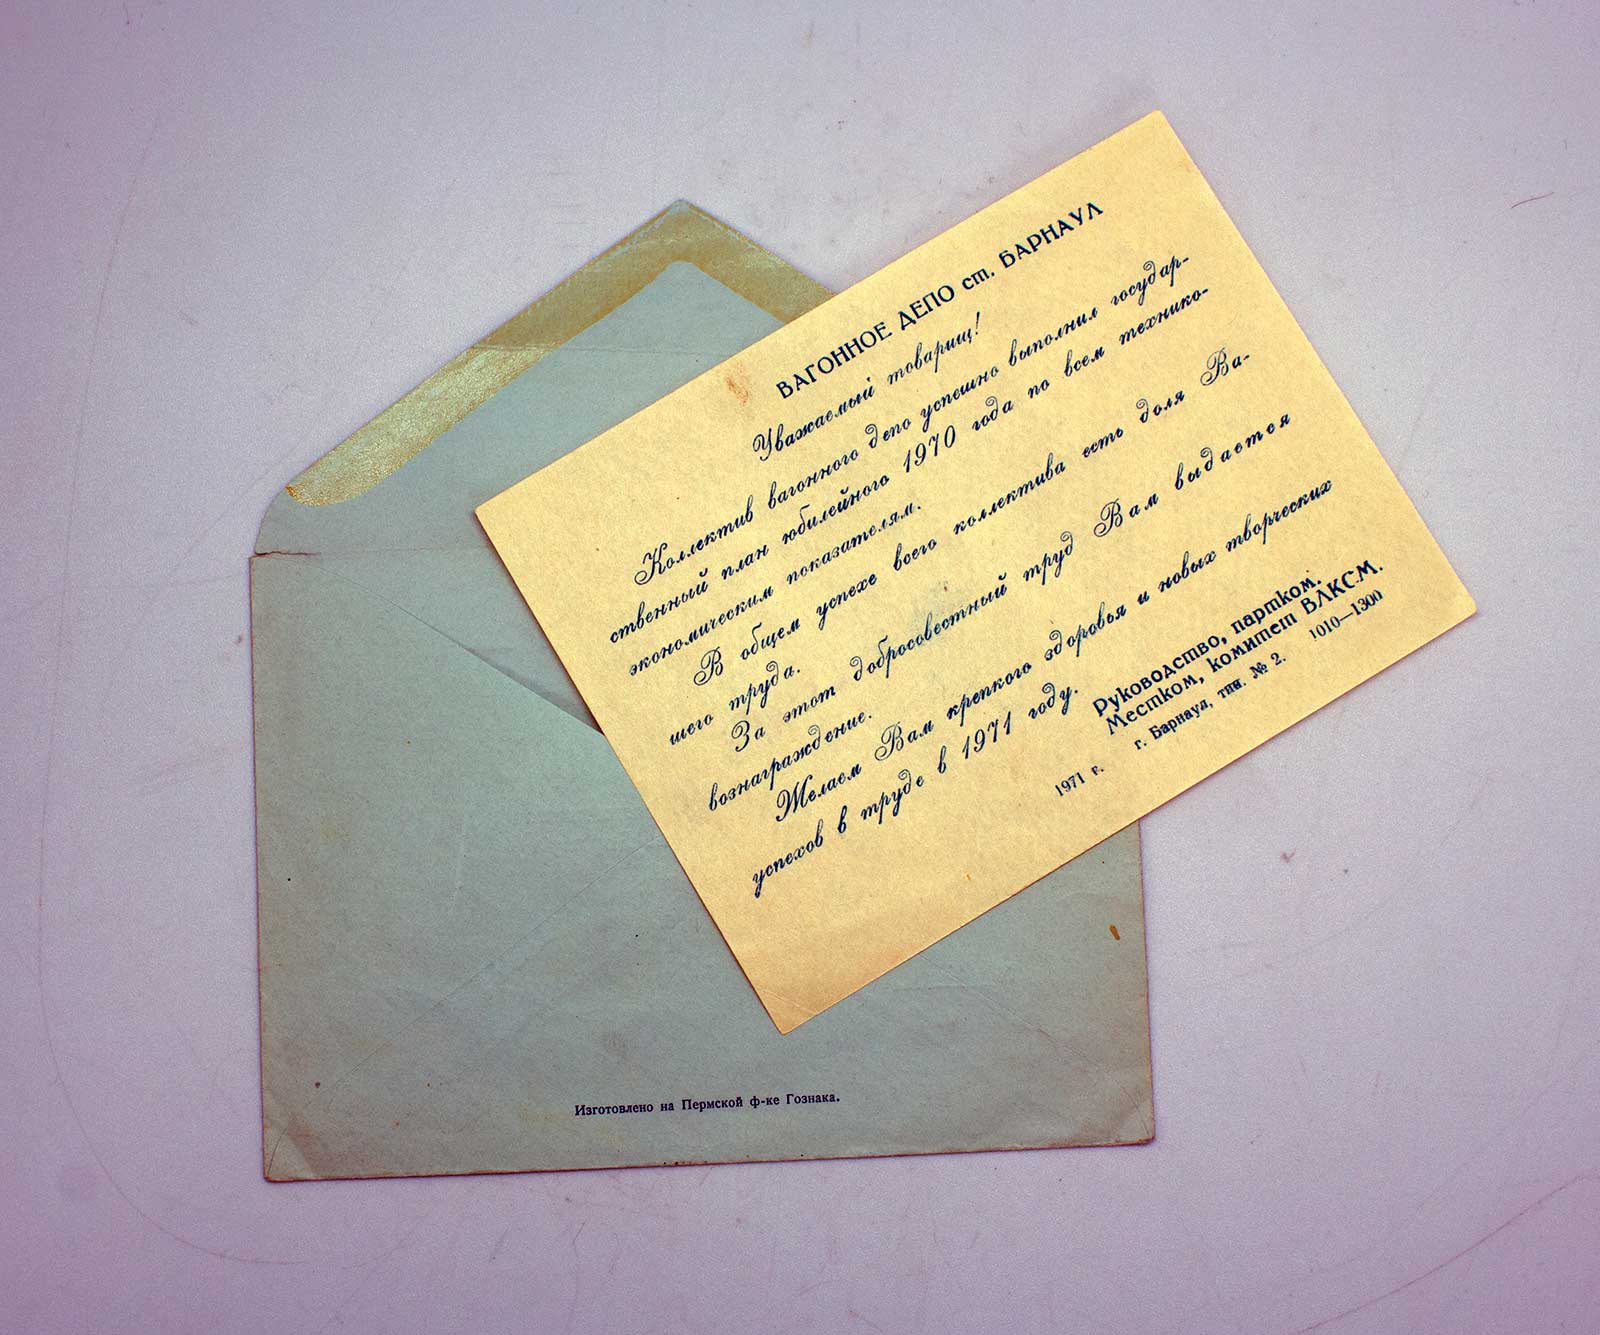 ВАГОННОЕ ДЕПО ст. БАРНАУЛ
Уважаемый товарищ!
Коллектив вагонного депо успешно выполнил государ-
ственный план юбилейного 1970 года по всем технико-
экономическим показателям.
В общем успехе всего коллектива есть доля Ва-
шего труда.
За этот добросовестный труд Вам выдается
вознаграждение.
Желаем Вам крепкого здоровья и новых творческих
успехов в труде в 1971 году.
Руководство, партком.
Местком, комитет ВЛКСМ.
1971 г. г. Барнаул, тип. № 2. 1010—1300
Изготовлено на Пермской ф-ке Гознака.